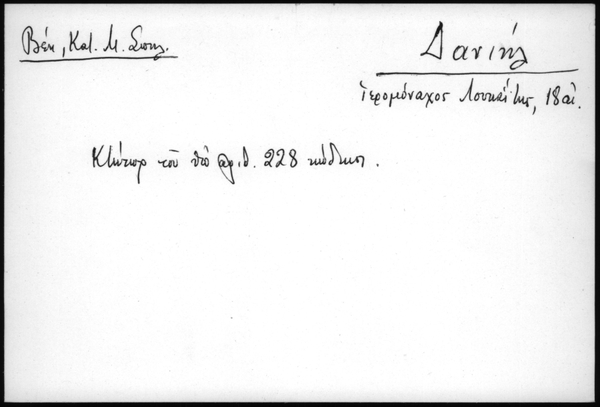 Βέη, Κατ. Μ. Σπηλ.
Δανιήλ
ἱερομόναχος Λουκαΐτης, 18 αἰ.
Κτήτωρ τοῦ ὑπ' ἀριθ. 228 κώδικος.